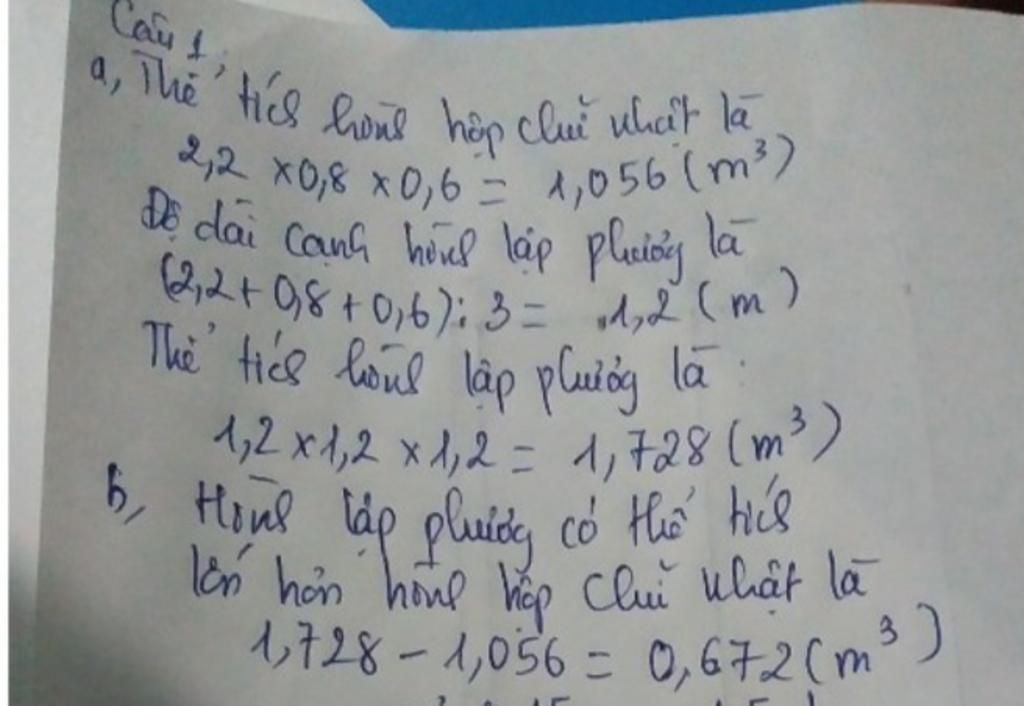 Câu 1,
a, Thể tích hình hộp chữ nhật là
2,2 × 0,8 × 0,6 = 1,056 (m³)
Độ dài cạnh hình lập phương là
(2,2 + 0,8 + 0,6) : 3 = 1,2 (m)
Thể tích hình lập phương là :
1,2 × 1,2 × 1,2 = 1,728 (m³)
b, Hình lập phương có thể tích
lớn hơn hình hộp chữ nhật là
1,728 - 1,056 = 0,672 (m³)